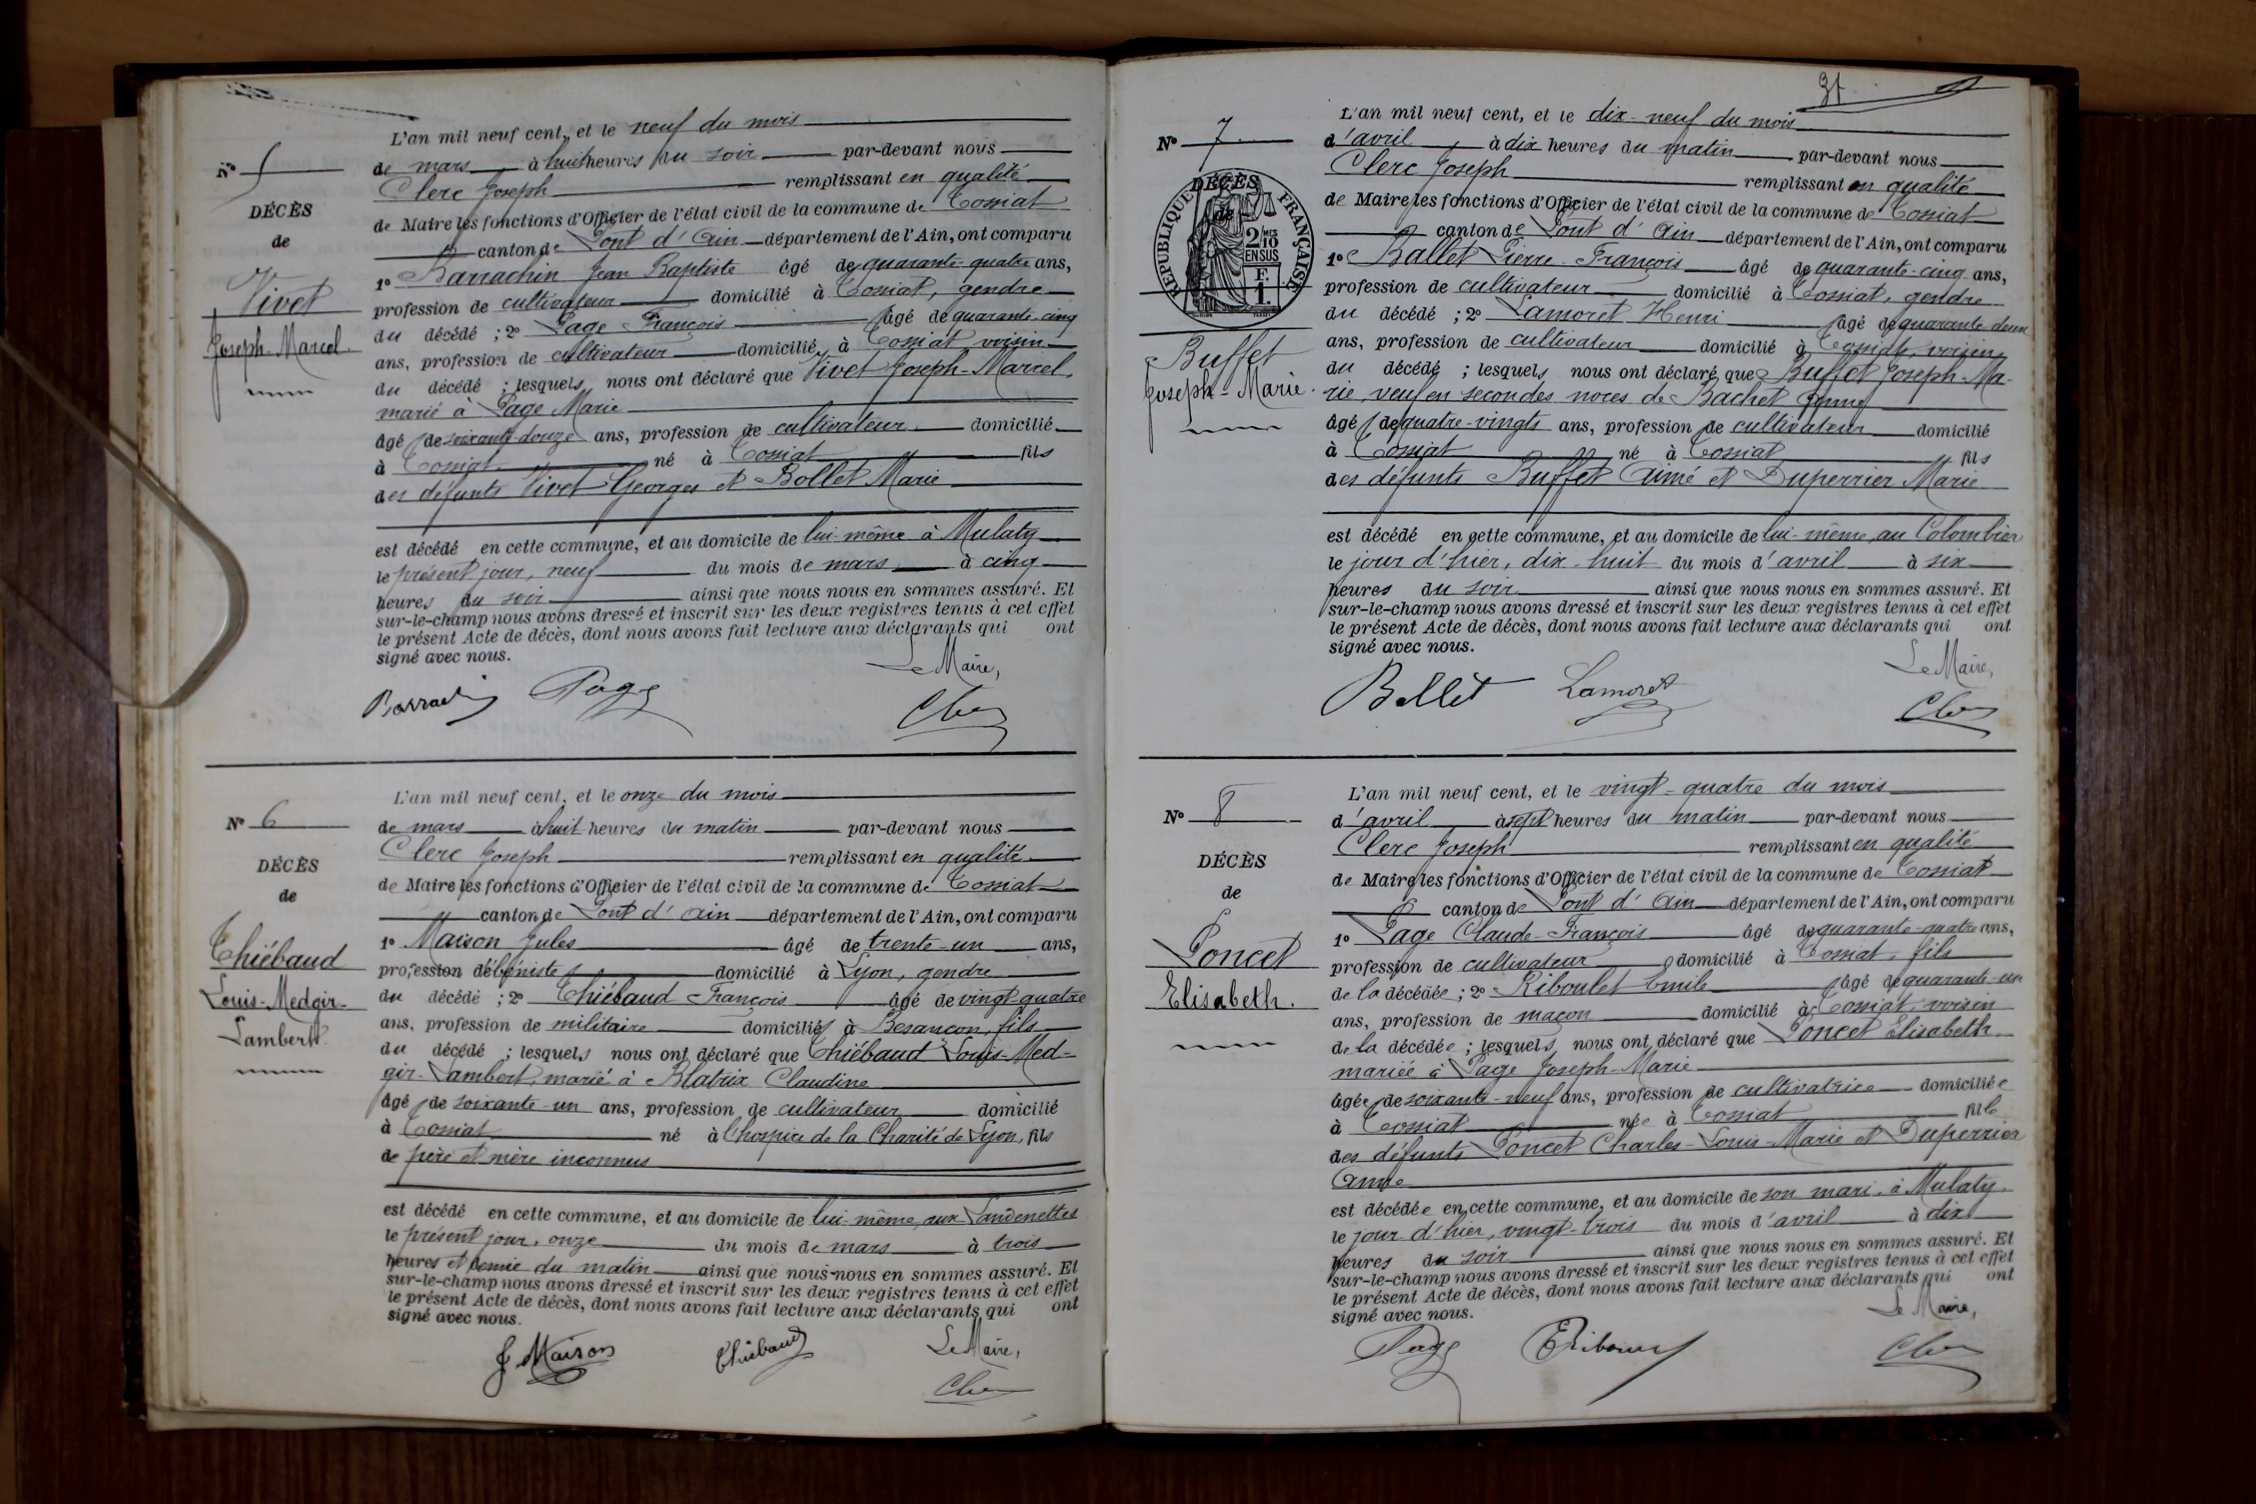 Nº 5
DÉCÈS
de
Vivet
Joseph-Marcel.
L'an mil neuf cent, et le neuf du mois
de mars à huit heures du soir par-devant nous
Clerc Joseph remplissant en qualité
de Maire les fonctions d'Officier de l'état civil de la commune de Tossiat
canton de Pont d'Ain département de l'Ain, ont comparu
1º Barrachin Jean Baptiste âgé de quarante-quatre ans,
profession de cultivateur domicilié à Tossiat, gendre
du décédé ; 2º Page François âgé de quarante-cinq
ans, profession de cultivateur domiciliés à Tossiat, voisin
du décédé ; lesquels nous ont déclaré que Vivet Joseph-Marcel,
marié à Page Marie
âgé de soixante-douze ans, profession de cultivateur domicilié
à Tossiat né à Tossiat fils
des défunts Vivet Georges et Bollet Marie
est décédé en cette commune, et au domicile de lui-même à Mulaty
le présent jour, neuf du mois de mars à cinq
heures du soir ainsi que nous nous en sommes assuré. Et
sur-le-champ nous avons dressé et inscrit sur les deux registres tenus à cet effet
le présent Acte de décès, dont nous avons fait lecture aux déclarants qui ont
signé avec nous.
Le Maire,
Page
Nº 6
DÉCÈS
de
Thiébaud
Louis-Medgir-
Lambert
L'an mil neuf cent, et le onze du mois
de mars à huit heures du matin par-devant nous
Clerc Joseph remplissant en qualité
de Maire les fonctions d'Officier de l'état civil de la commune de Tossiat
canton de Pont d'Ain département de l'Ain, ont comparu
1º Maison Jules âgé de trente-un ans,
profession d'ébéniste domicilié à Lyon, gendre
du décédé ; 2º Thiébaud François âgé de vingt-quatre
ans, profession de militaire domiciliés à Besançon, fils
du décédé ; lesquels nous ont déclaré que Thiébaud Louis-Med-
gir-Lambert, marié à Blatrix Claudine
âgé de soixante-un ans, profession de cultivateur domicilié
à Tossiat né à l'hospice de la Charité de Lyon, fils
de père et mère inconnus
est décédé en cette commune, et au domicile de lui-même, aux Landenettes
le présent jour, onze du mois de mars à trois
heures et demie du matin ainsi que nous nous en sommes assuré. Et
sur-le-champ nous avons dressé et inscrit sur les deux registres tenus à cet effet
le présent Acte de décès, dont nous avons fait lecture aux déclarants qui ont
signé avec nous.
Le Maire,
J Maison Thiébaud
31
Nº 7
DÉCÈS
de
RÉPUBLIQUE FRANÇAISE
2/10
EN SUS
F.
1.
Buffet
Joseph-Marie.
L'an mil neuf cent, et le dix-neuf du mois
d'avril à dix heures du matin par-devant nous
Clerc Joseph remplissant en qualité
de Maire les fonctions d'Officier de l'état civil de la commune de Tossiat
canton de Pont d'Ain département de l'Ain, ont comparu
1º Ballet Pierre François âgé de quarante-cinq ans,
profession de cultivateur domicilié à Tossiat, gendre
du décédé ; 2º Lamoret Henri âgé de quarante-deux
ans, profession de cultivateur domiciliés à Tossiat, voisin
du décédé ; lesquels nous ont déclaré que Buffet Joseph-Ma-
rie, veuf en secondes noces de Bachet
âgé de quatre-vingts ans, profession de cultivateur domicilié
à Tossiat né à Tossiat fils
des défunts Buffet Aimé et Duperrier Marie
est décédé en cette commune, et au domicile de lui-même, au Colombier
le jour d'hier, dix-huit du mois d'avril à six
heures du soir ainsi que nous nous en sommes assuré. Et
sur-le-champ nous avons dressé et inscrit sur les deux registres tenus à cet effet
le présent Acte de décès, dont nous avons fait lecture aux déclarants qui ont
signé avec nous.
Le Maire,
Ballet Lamoret
Nº 8
DÉCÈS
de
Poncet
Elisabeth.
L'an mil neuf cent, et le vingt-quatre du mois
d'avril à sept heures du matin par-devant nous
Clerc Joseph remplissant en qualité
de Maire les fonctions d'Officier de l'état civil de la commune de Tossiat
canton de Pont d'Ain département de l'Ain, ont comparu
1º Page Claude-François âgé de quarante-quatre ans,
profession de cultivateur domicilié à Tossiat, fils
de la décédée ; 2º Riboulet Emile âgé de quarante-un
ans, profession de maçon domicilié à Tossiat, voisin
de la décédée ; lesquels nous ont déclaré que Poncet Elisabeth
mariée à Page Joseph-Marie
âgée de soixante-neuf ans, profession de cultivatrice domiciliée
à Tossiat née à Tossiat fille
des défunts Poncet Charles-Louis-Marie et Duperrier
Anne
est décédée en cette commune, et au domicile de son mari, à Mulaty.
le jour d'hier, vingt-trois du mois d'avril à dix
heures du soir ainsi que nous nous en sommes assuré. Et
sur-le-champ nous avons dressé et inscrit sur les deux registres tenus à cet effet
le présent Acte de décès, dont nous avons fait lecture aux déclarants qui ont
signé avec nous.
Le Maire,
Page